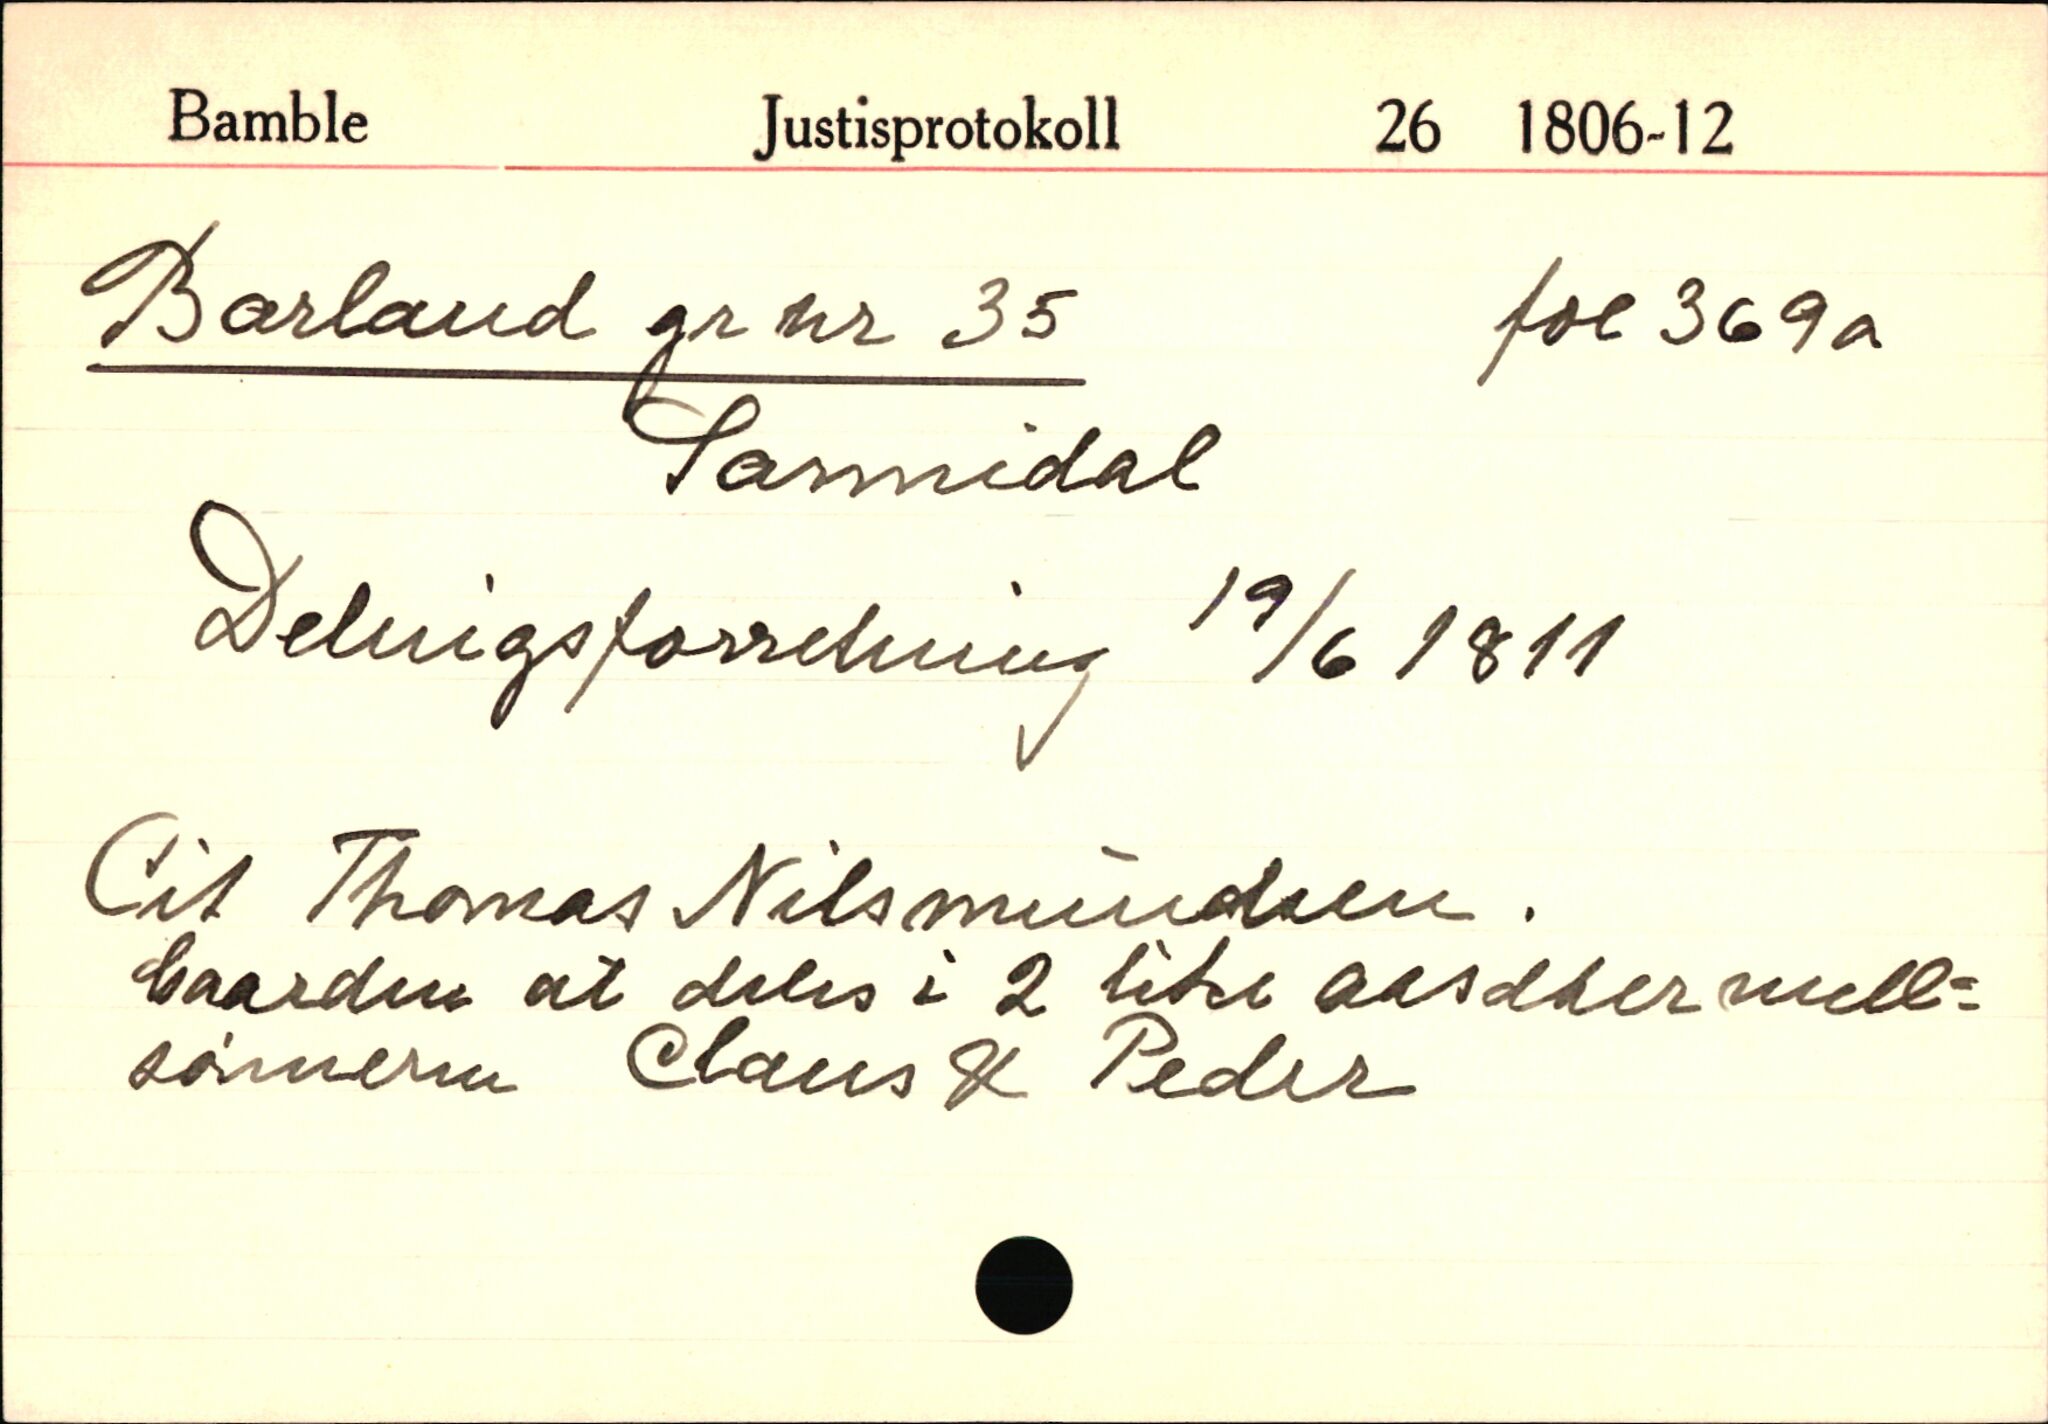 Bamble Justisprotokoll 26 1806-12
Barland gr nr 35 fol 369a
Sannidal
Delingsforretning 19/6 1811
Cit Thomas Nilsmundsen.
Gaarden at deles i 2 like mell=
sönnerne Claus & Peder